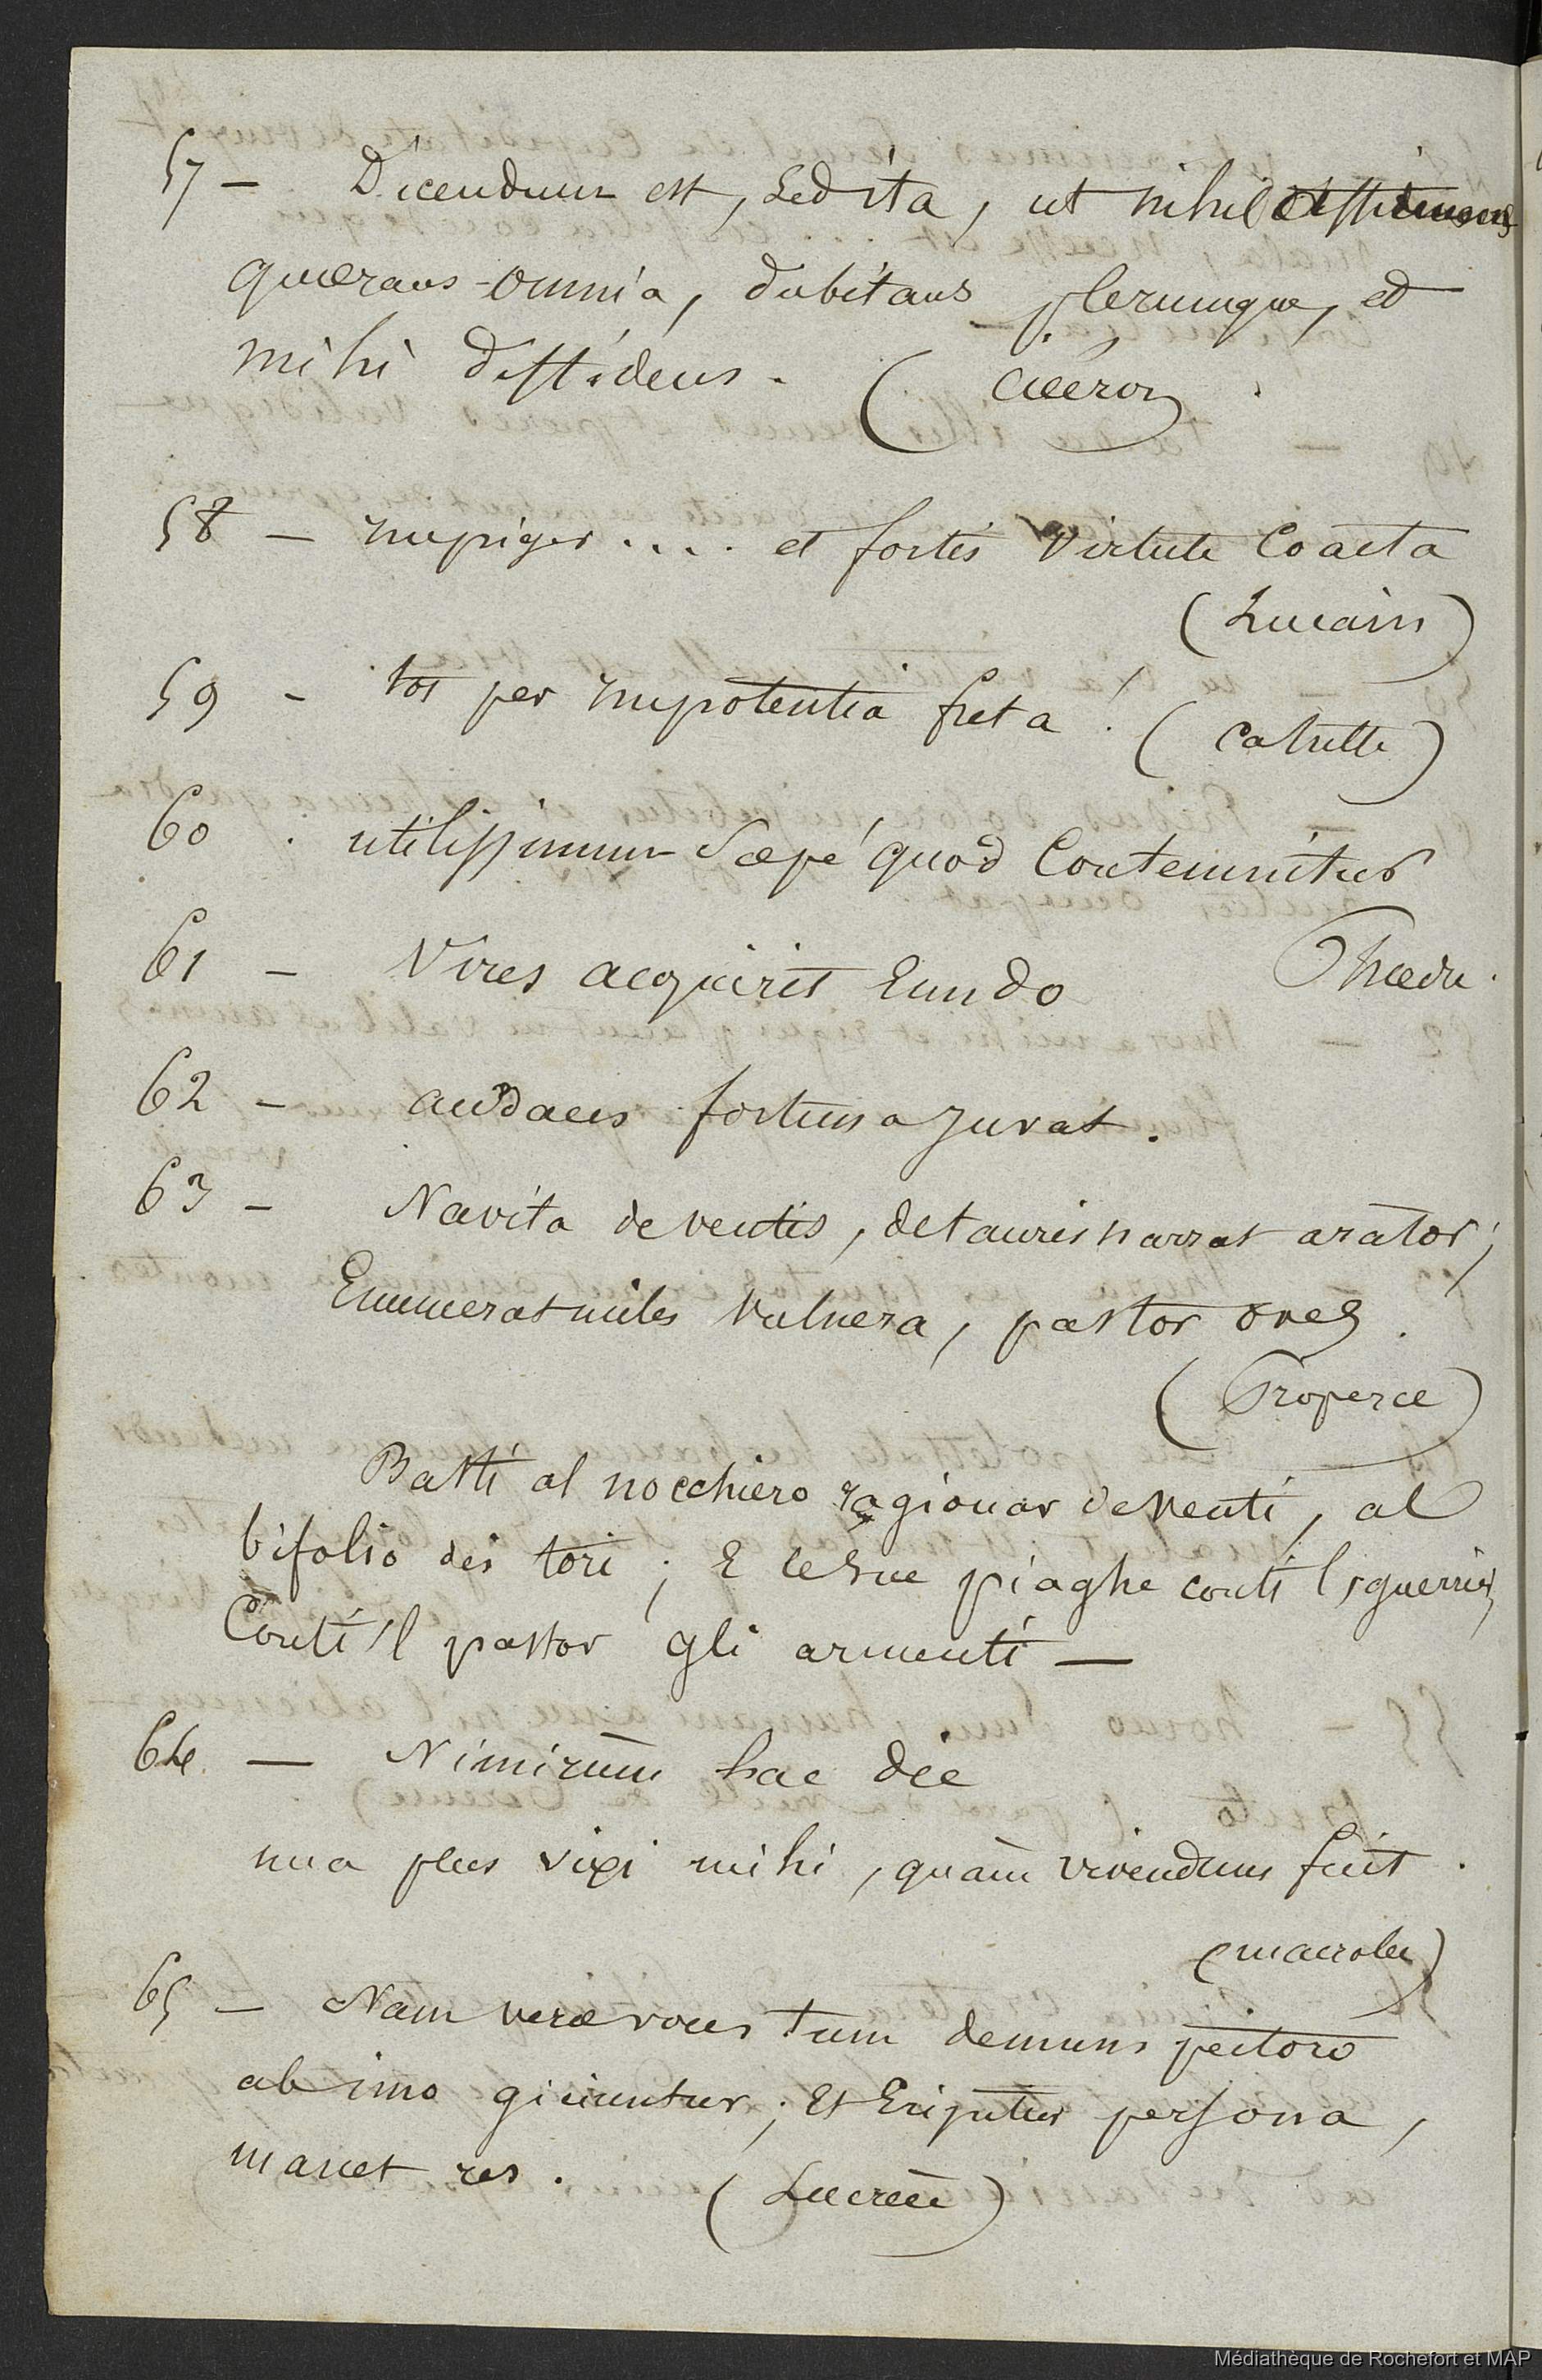 57 – Dicendum est, sed ita, ut nihil affirmem
quærans omnia, dubitans plerumque, et
mihi diffidens. (Cicéron)
58 – impiger .... et fortis virtute coacta
(Lucain)
59 – tot per impotentia freta! (Catulle)
60 . utilissimum sæpé quod Contemnitur
61 – Vires acquirit Eundo Phœdre.
62 – audaces fortuna juvat.
63 – Navita de ventis, de tauris narrat arator;
Enumerat miles vulnera, pastor oves.
(Properce)
Basti al nocchiero ragionar de venti, al
bifolio dei tori; E le sue piaghe conti l'guerrier,
Conti'l pastor gli armenti —
64 — Nimirùm hac die
una plus vixi mihi, quàm vivendum fuit.
(macrobe)
65 – Nam veræ voces tum demum pectore
ab imo giciuntur; Et Eripitur persona,
manet res. (Lucrèce)
Médiathèque de Rochefort et MAP